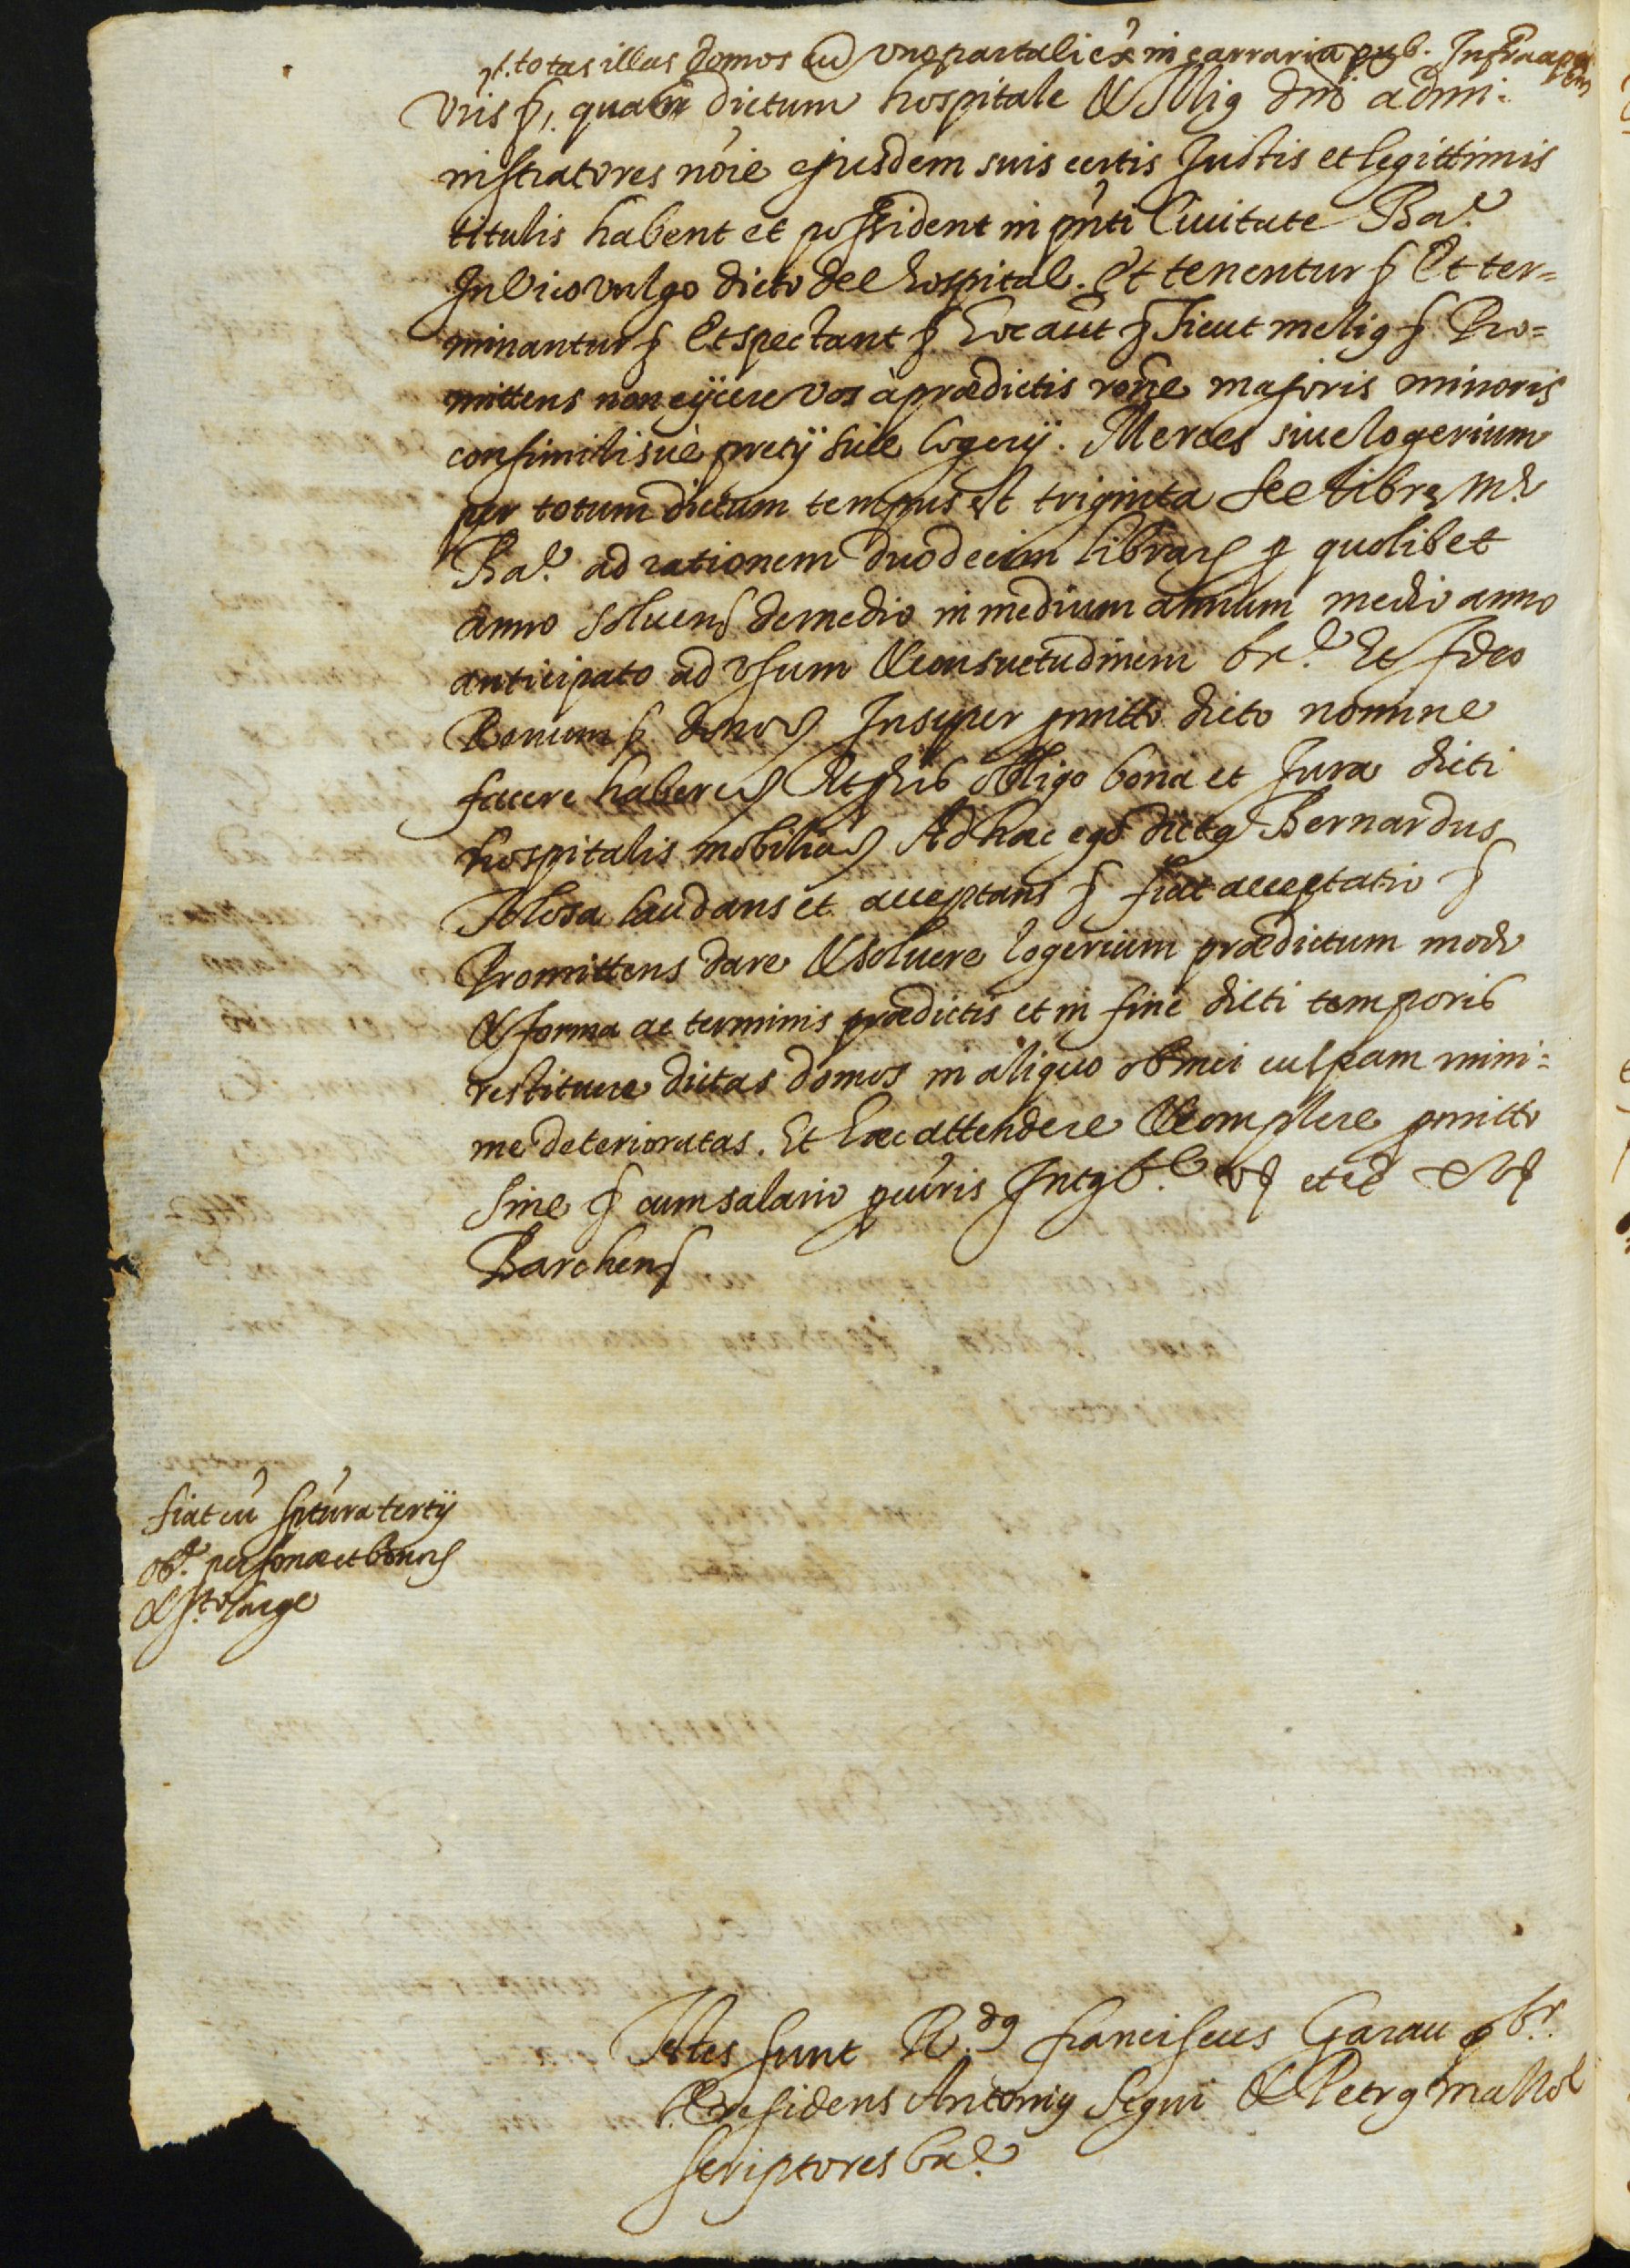 totas illas domos cu vno portali ex in carraria pub. Infra
vris &, quam dictum hospitale & Mag dni admi:
nistratores noie ejusdem suis certis Justis et legittimis
titulis habent et possident in pnti Ciuitate Bar.
In Vico vulgo dicto del hospital. Et tenentur & Et ter=
minantur & Et spectant & hoc aut & sicut melig & Pro=
mittens non eijcere vos à prædictis rone majoris minoris
consimilisuè pretij siue logerij. Merces siue logerium
per totum dictum tempus est triginta sex libre m
Bar. ad rationem duodecim librar p quolibet
anno soluen de medio in medium annum medio anno
anticipato ad vsum & consuetudinem br. Et Ideo
Renum & dono & Insuper pmitto dicto nomine
facere habere & Et p his obligo bona et Jura dicti
hospitalis mobilia & Ad hæc ego dictg Bernardus
Tolosa laudans et acceptans & fiat acceptatio &
Promittens dare & soluere logerium prædictum modo
& forma ac terminis prædictis et in fine dicti temporis
restituere dictas domos in aliquo ob mei culpam mini:
me deterioratas. Et hæc attendere & complere pmitto
sine & cum salario pcuris Intg b. et
Barchen
fiat cu sptura tertij
ob. personæ et bonor
& large
Testes sunt R.dg franciscus Garau pbr.
Bre residens Antonig Segui & Petrg mallol
scriptores bre.